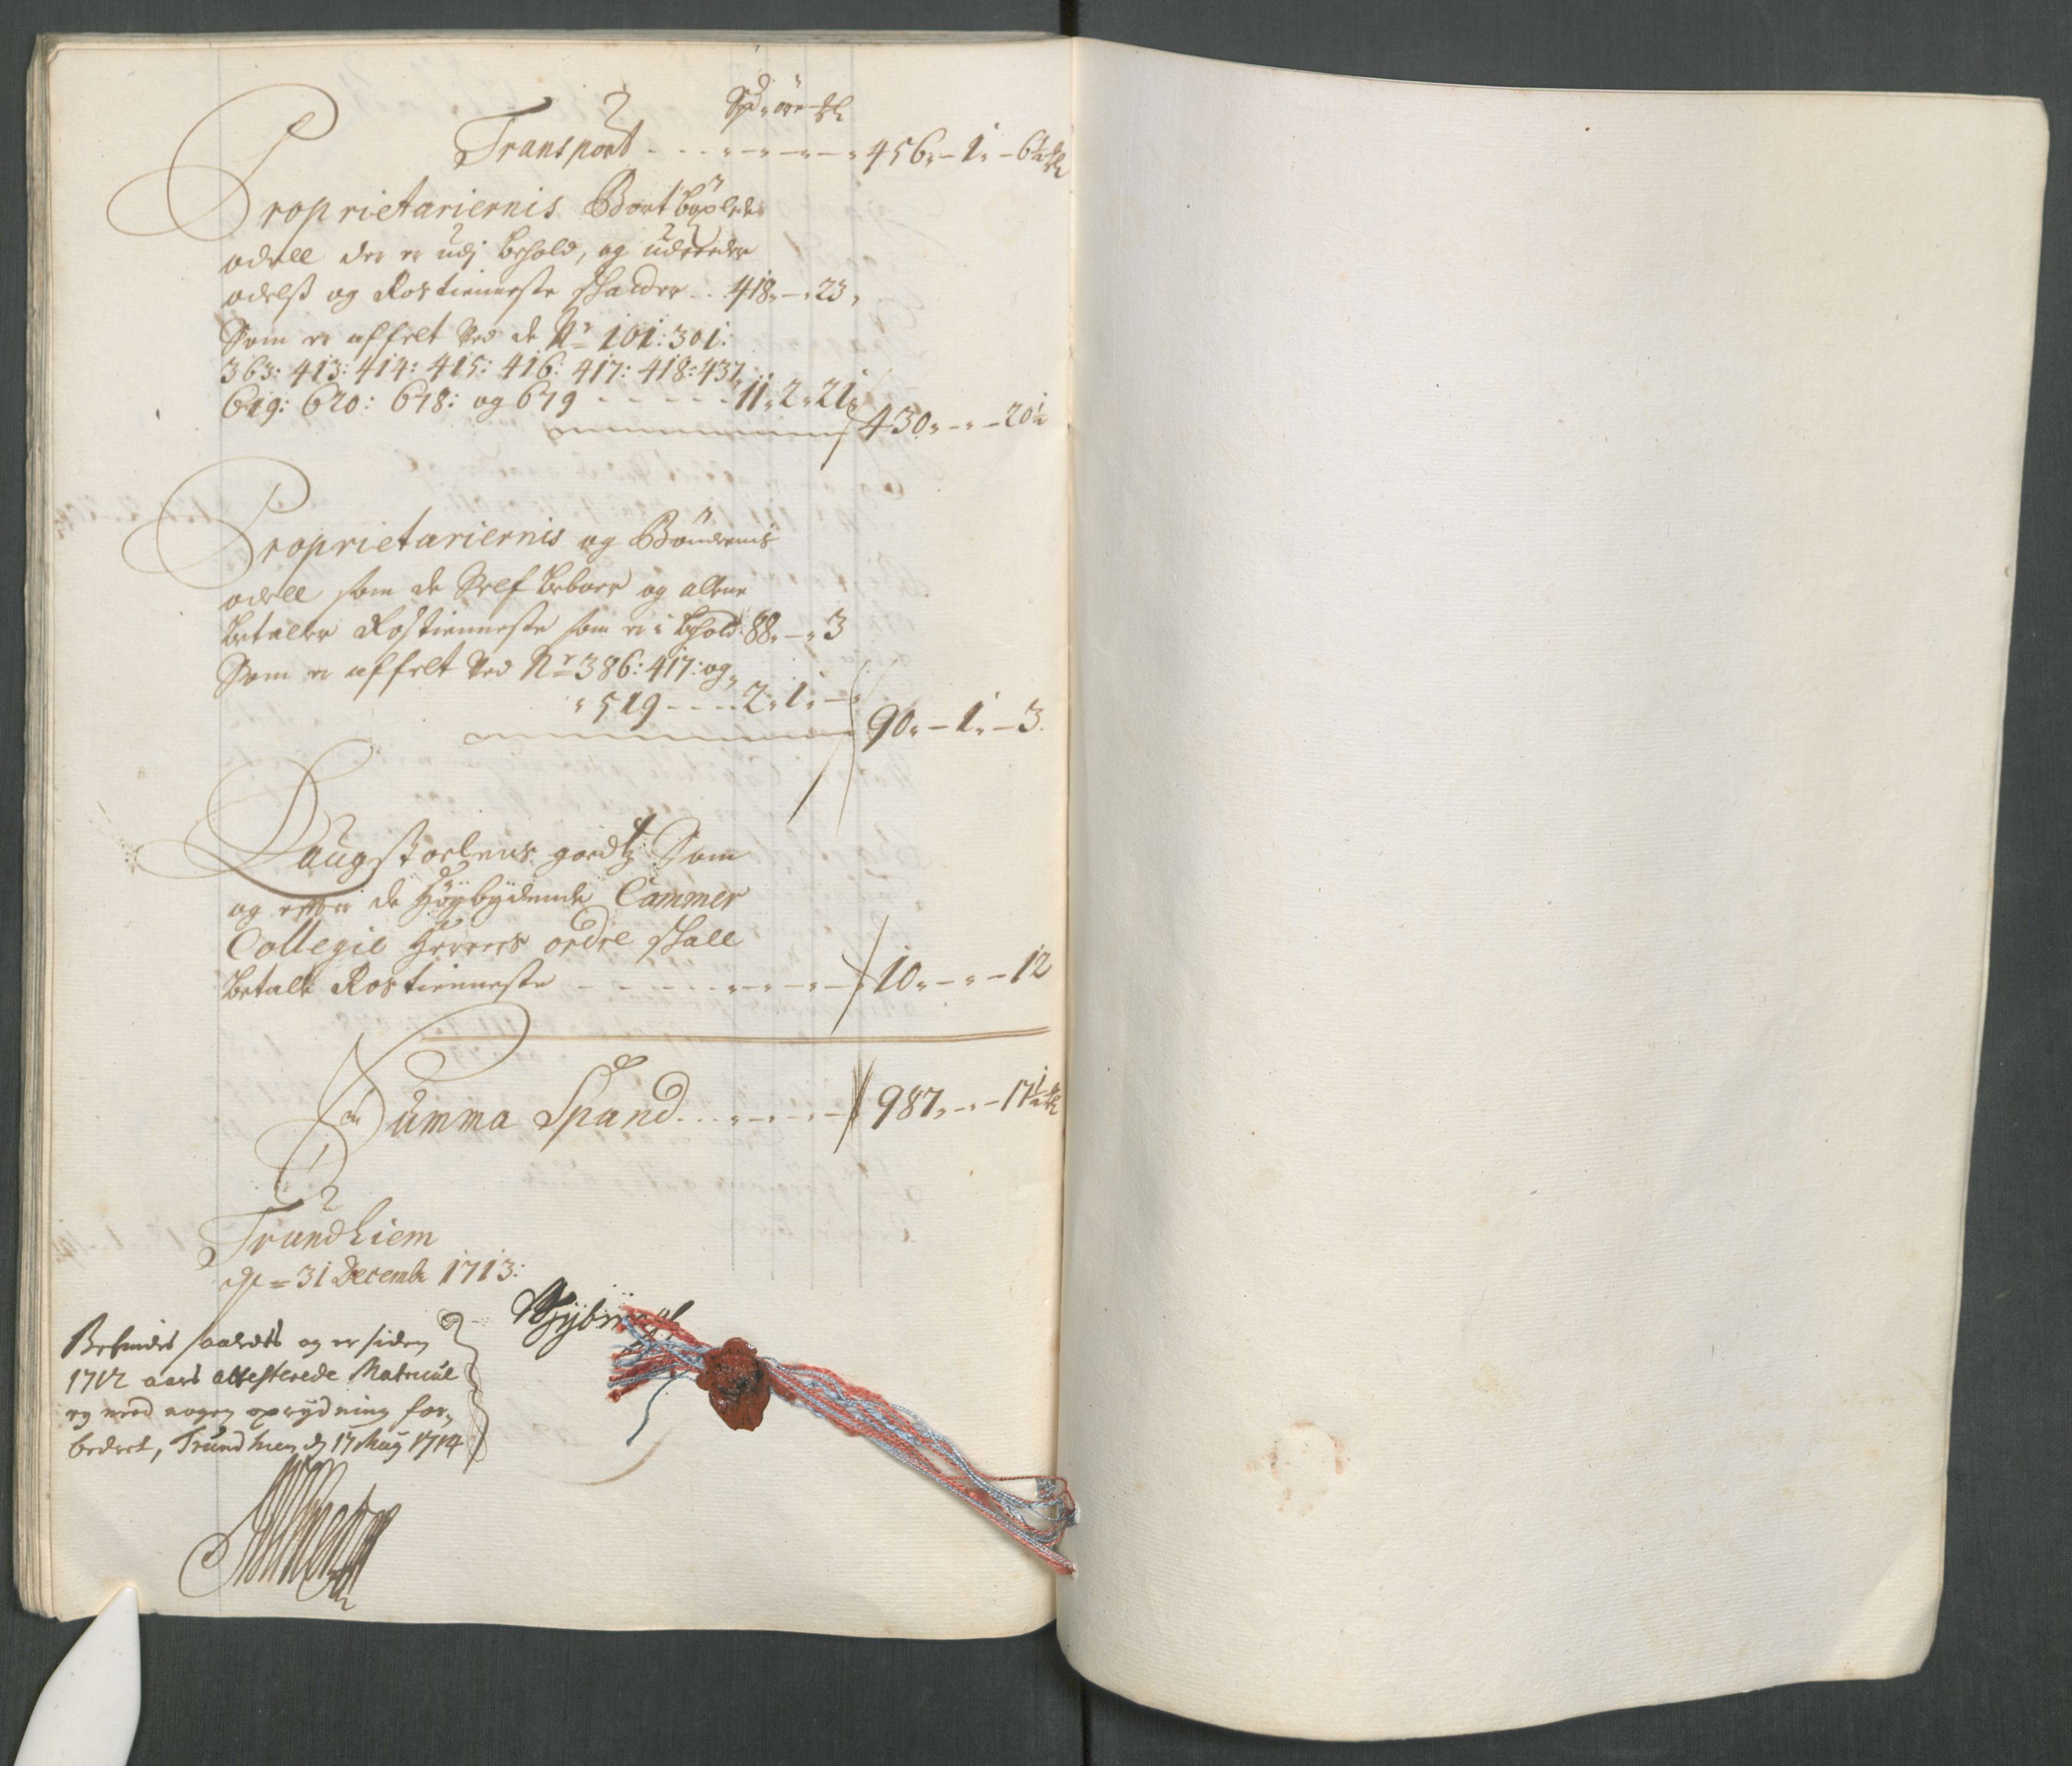 Spd " øre - ℔
Transport - - - " - " - - - " 456 " - 1 " - 6½ ℔
Proprietariernis Bortbøxlede
odell der er udj behold, og udreeder
odelß og Rostienneste skader - - 418 " - " 23 "
Som er affelt ved de Nr 101: 301:
363: 413: 414: 415: 416: 417: 418: 437
619: 620: 678: og 679 - - - - - 11 " 2 " 21½
430 " - " - 20½
Proprietariernis og Bøndernis
odell som de Self beboer og allene
betaler Rostienneste som er i behold 88 " - " 3
Som er affelt ved Nr 386: 417: og
" 519 - - - - 2 " 1 " - "
90 " - 1 " - 3
Laugstoelens goedtz Som
og efter de Høybydende Cammer
Collegie Herrers ordre skall
betale Rostienneste - - - - - " - " - " - " 10 " - " - 12
Summa Spand - - - " - " - " - 987 " - " - 17½ ℔
Trundhiem
d: = 31 Decembr 1713:
Befindes saaledes og er siden
1712 aars attesterede Matricul
ey med nogen oprydning for,,
bedret, Trundhiem d 17 Maij 1714